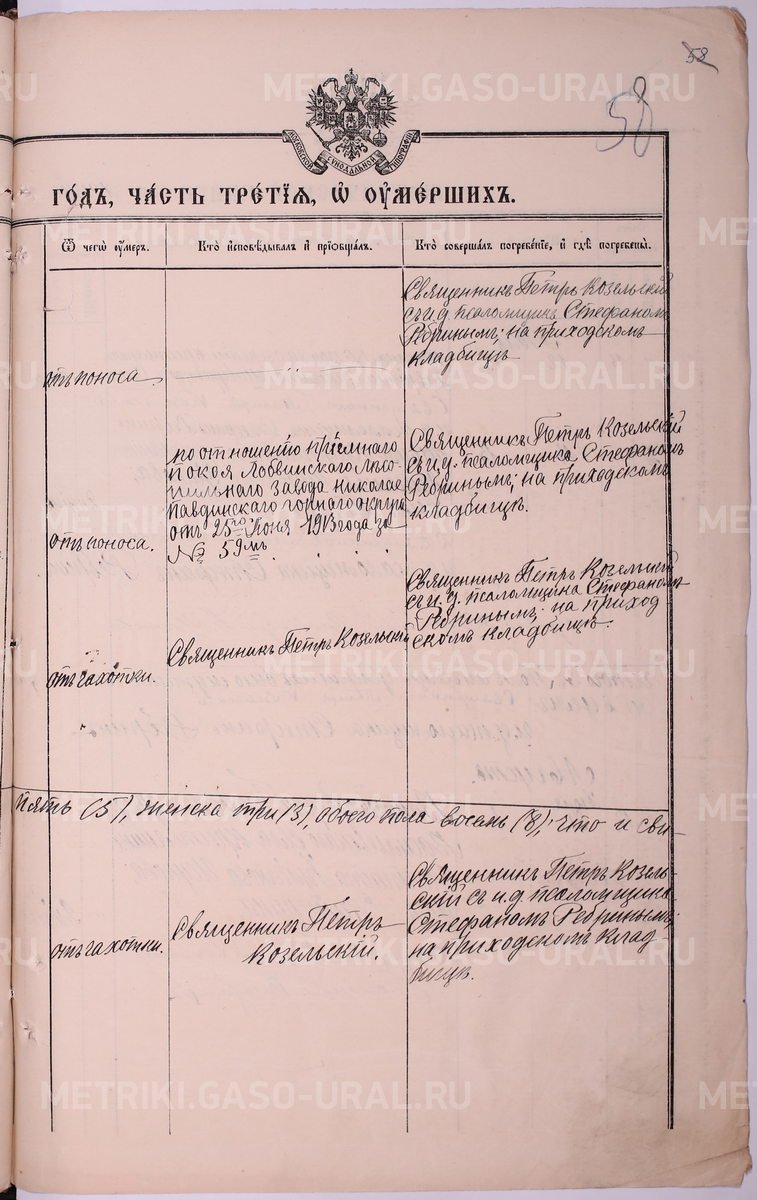 58
58
МОСКОВСКОЙ СѴНОДАЛЬНОЙ ТИПОГРАФІИ
ГО́ДЪ, ЧА́СТЬ ТРЕ́ТІЯ, Ѡ ОУМЕ́РШИХЪ.
Ѿ чегѡ оу́меръ.
Кто̀ и҆сповѣ́дывалъ и҆ прїѡбща́лъ.
Кто̀ соверша́лъ погребе́нїе, и҆ гдѣ̀ погребены̀.
отъ поноса
Священникъ Петръ Козельскій
съ и.д. псаломщика Стефаномъ
Ребринымъ; на приходскомъ
кладбищѣ
отъ поноса.
по отношенію пріемнаго
покоя Лобвинскаго лѣсо-
пильнаго завода Николае-
Павдинскаго горнаго округа
отъ 25го Іюня 1913 года за
№ 59мъ
Священникъ Петръ Козельскій
съ и.д. псаломщика Стефаномъ
Ребринымъ; на приходскомъ
кладбищѣ.
отъ чахотки.
Священникъ Петръ Козельскій
Священникъ Петръ Козельскій
съ и.д. псаломщика Стефаномъ
Ребринымъ: на приход
скомъ кладбищѣ.
пять (5), женска три (3), обоего пола восемь (8); что и сви-
отъ чахотки.
Священникъ Петръ
Козельскій.
Священникъ Петръ Козель-
скій съ и.д. псаломщика
Стефаномъ Ребринымъ;
на приходскомъ клад
бищѣ.
METRIKI.GASO-URAL.RU